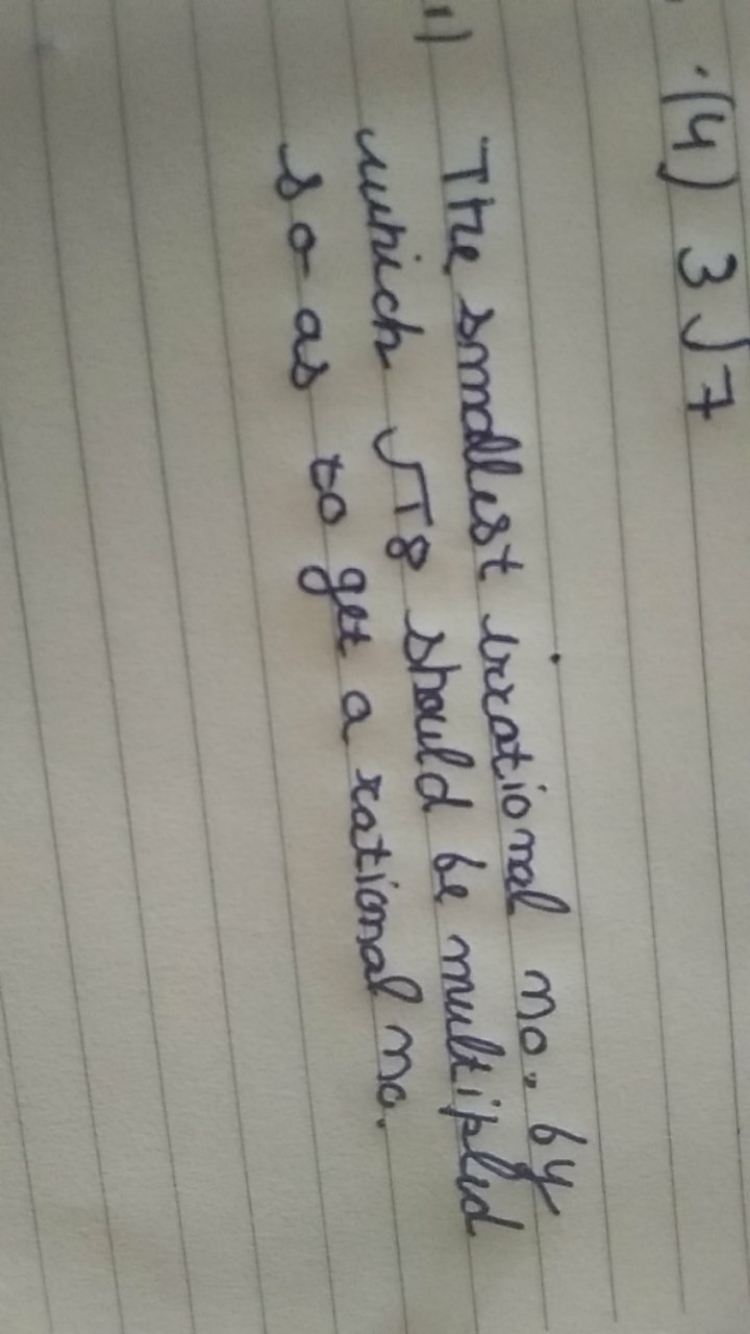 (4) 3√7
1) The smallest irrational no. by
which √18 should be multiplied
so as to get a rational no.